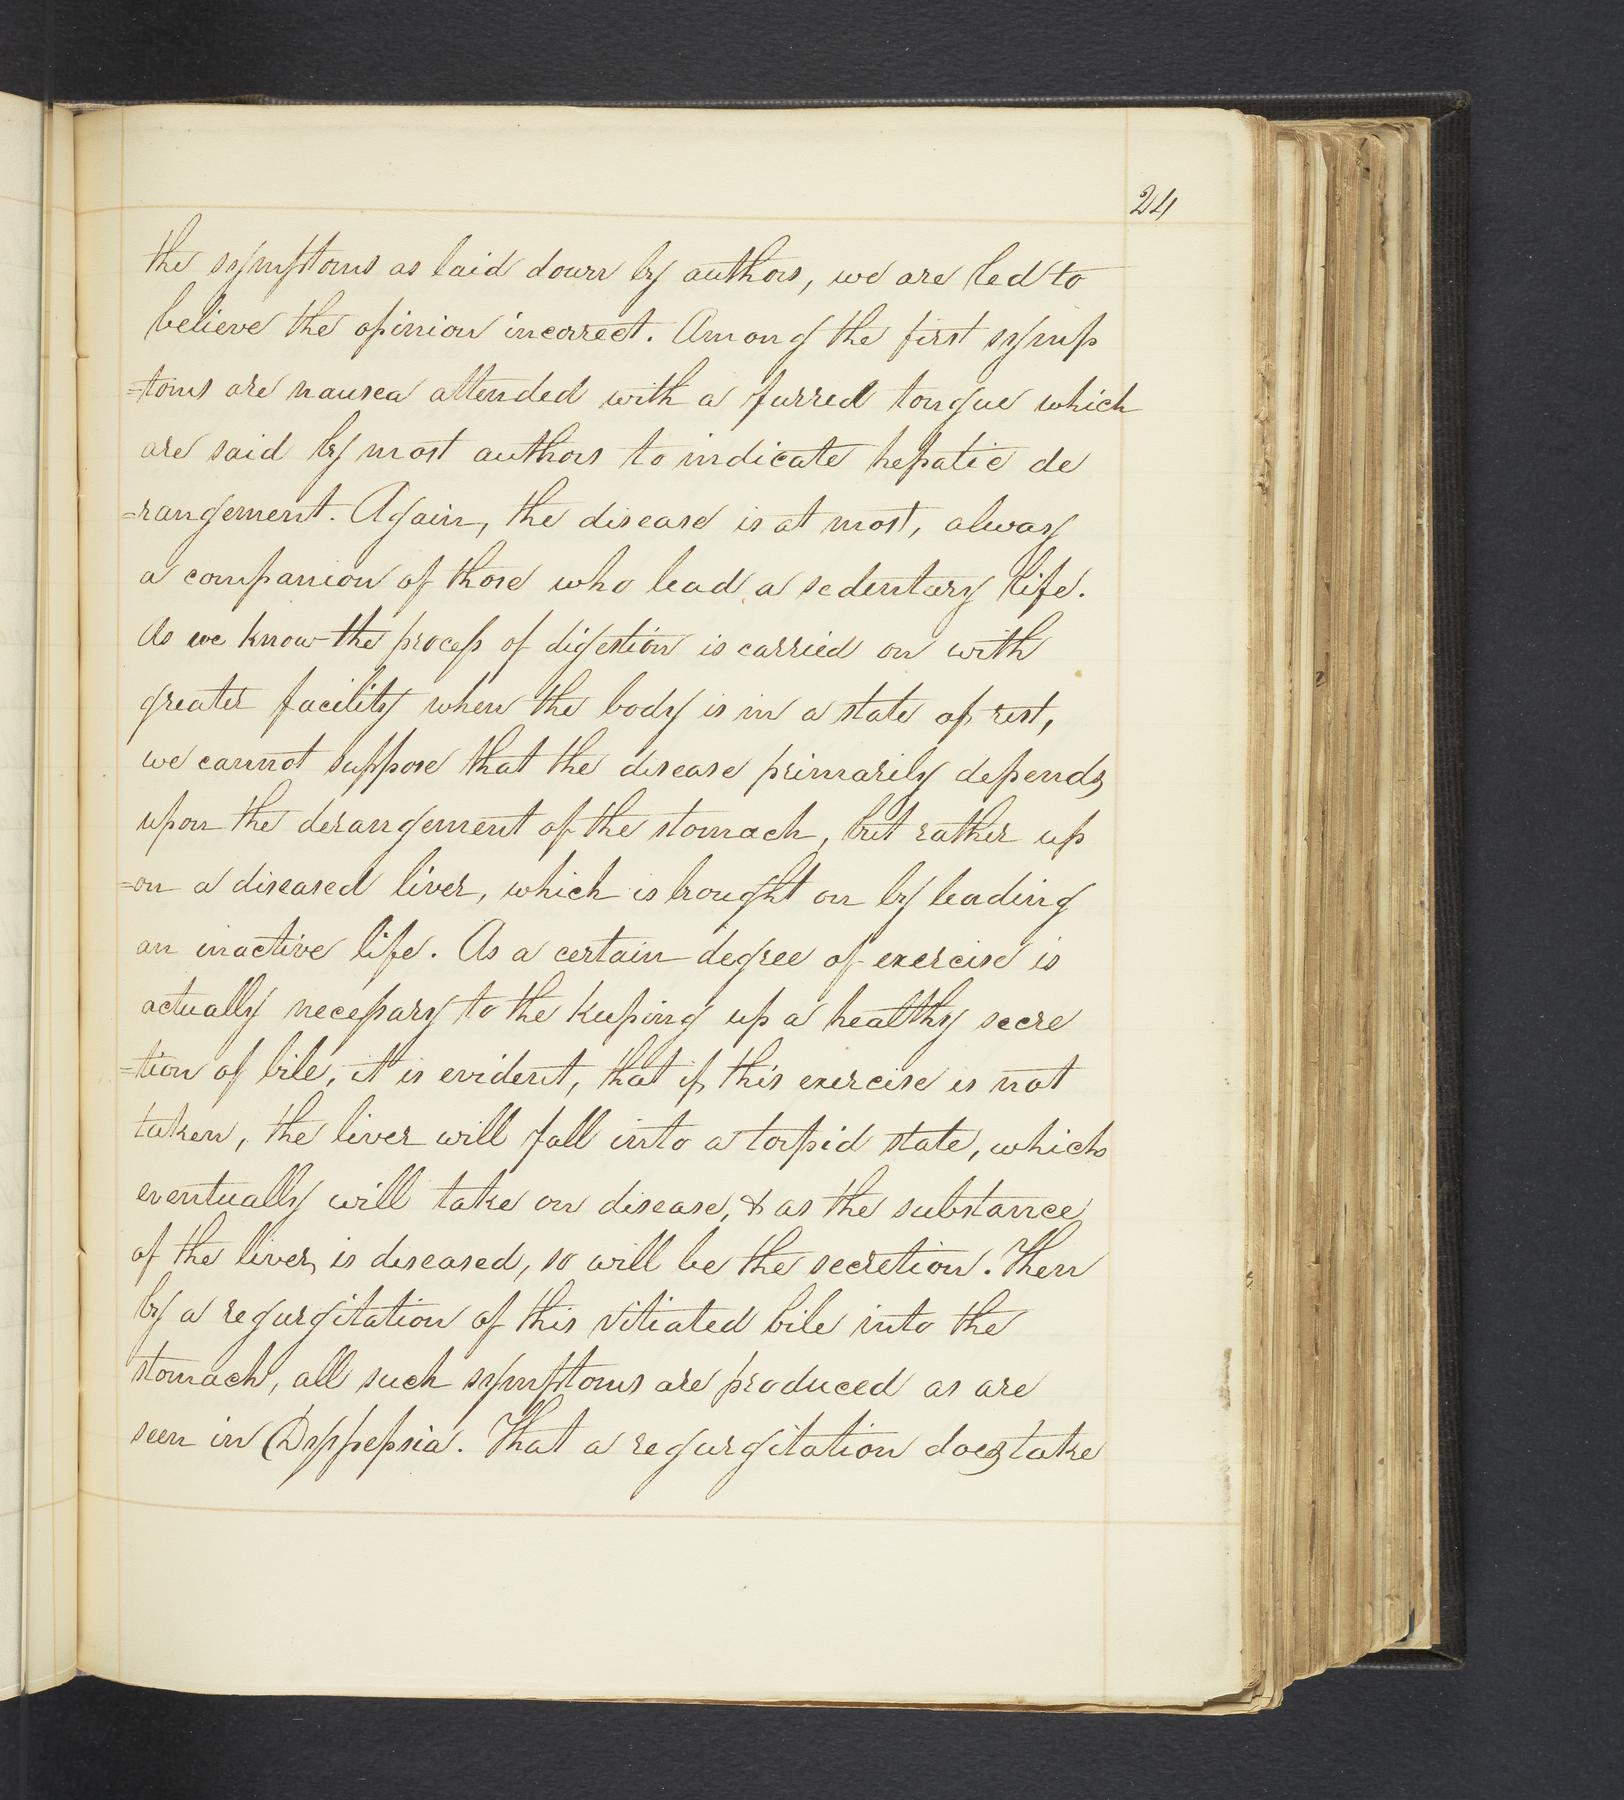 24
the symptoms as laid down by authors, we are led to
believe the opinion incorrect. Among the first symp
=toms are nausea attended with a furred tongue which
are said by most authors to indicate hepatic de
=rangement. Again, the disease is at most, alway
a companion of those who lead a sedentary life.
As we know the process of digestion is carried on with
greater facility when the body is in a state of rest,
we cannot suppose that the disease primarily depends
upon the derangement of the stomach, but rather up
=on a diseased liver, which is brought on by leading
an inactive life. As a certain degree of exercise is
actually necessary to the keeping up a healthy secre
=tion of bile, it is evident, that if this exercise is not
taken, the liver will fall into a torpid state, which
eventually will take on disease, & as the substance
of the liver is diseased, so will be the secretion. Then
by a regurgitation of this vitiated bile into the
stomach, all such symptoms are produced as are
seen in Dyspepsia. That a regurgitation does take